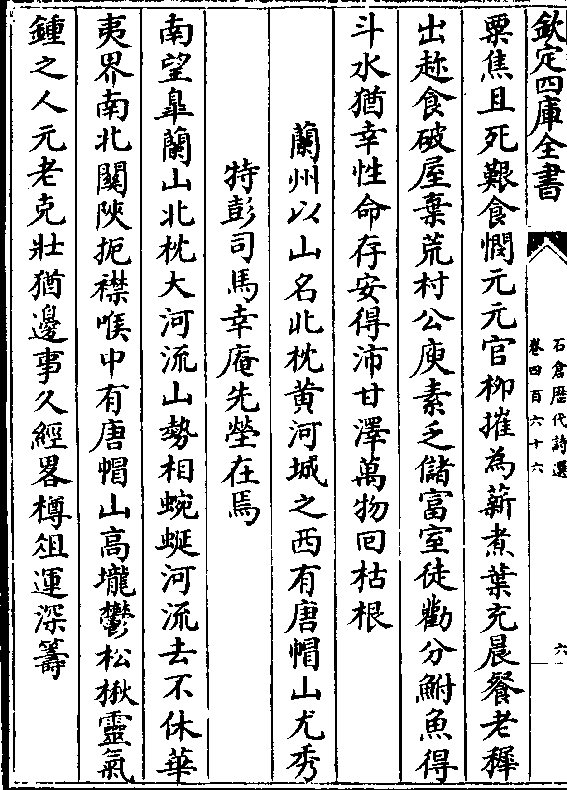 欽定四庫全書
石倉歴代詩選
卷四百六十六
六
粟焦且死艱食憫元元官柳摧為薪煮葉充晨餐老穉
出趂食破屋棄荒村公庾素乏儲富室徒勸分鮒魚得
斗水猶幸性命存安得沛甘澤萬物回枯根
蘭州以山名北枕黄河城之西有唐帽山尤秀
特彭司馬幸庵先塋在焉
南望臯蘭山北枕大河流山勢相蜿蜒河流去不休華
夷界南北關陜扼襟喉中有唐帽山高壠鬱松楸靈氣
鍾之人元老克壯猶邊事久經畧樽俎運深籌